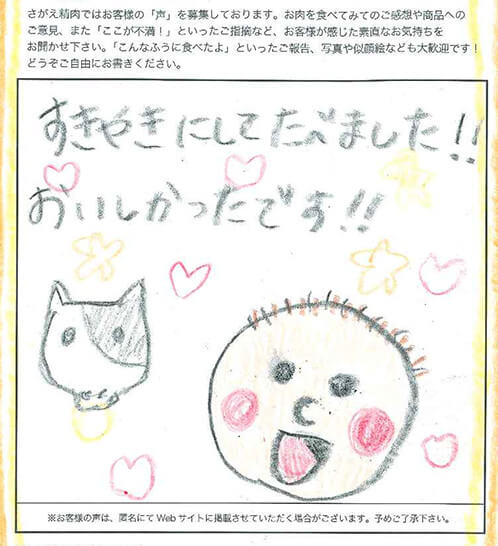 さがえ精肉ではお客様の「声」を募集しております。お肉を食べてみてのご感想や商品への
ご意見、また「ここが不満!」といったご指摘など、お客様が感じた素直なお気持ちを
お聞かせ下さい。「こんなふうに食べたよ」といったご報告、写真や似顔絵なども大歓迎です!
どうぞご自由にお書きください。
すきやきにしてたべました!!
おいしかったです!!
※お客様の声は、匿名にてWebサイトに掲載させていただく場合がございます。予めご了承下さい。